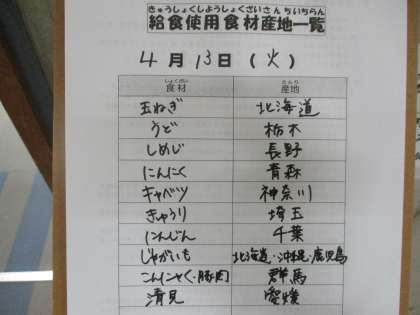 きゅうしょくしようしょくざいさんちいちらん
給食使用食材産地一覧
4月13日(火)
しょくざい さんち
食材 産地
玉ねぎ 北海道
うど 栃木
しめじ 長野
にんにく 青森
キャベツ 神奈川
きゅうり 埼玉
にんじん 千葉
じゃがいも 北海道・沖縄・鹿児島
こんにゃく・豚肉 群馬
清見 愛媛